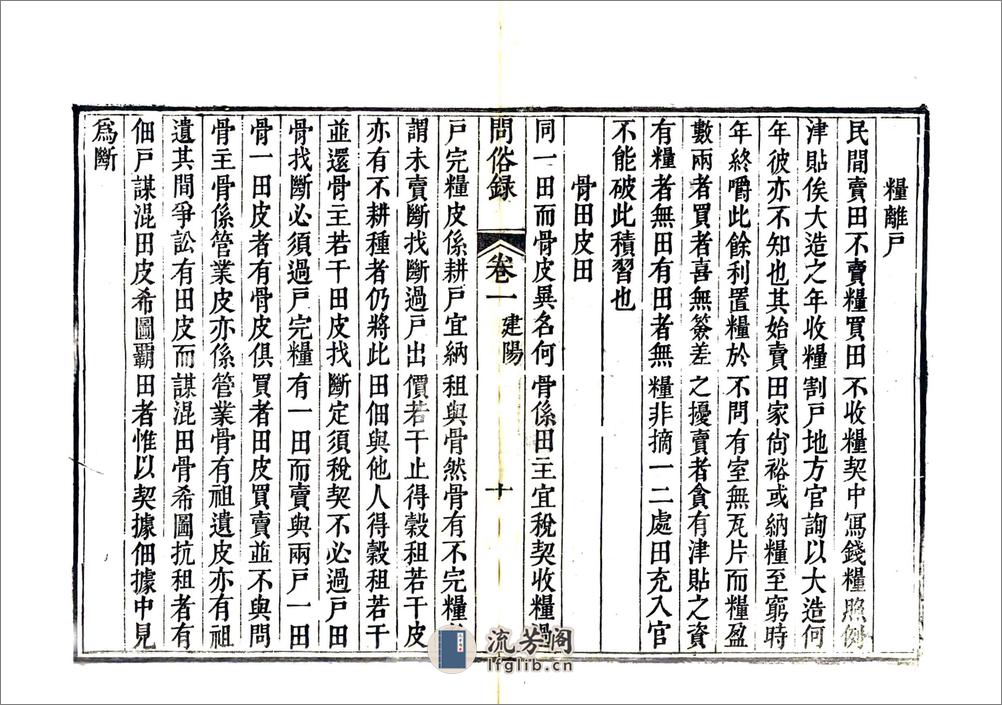 糧離戶
民間賣田不賣糧買田不收糧契中寫錢糧照例
津貼俟大造之年收糧割戶地方官詢以大造何
年彼亦不知也其始賣田家尙裕或納糧至窮時
年終嚼此餘利置糧於不問有室無瓦片而糧盈
數兩者買者喜無簽差之擾賣者貪有津貼之資
有糧者無田有田者無糧非摘一二處田充入官
不能破此積習也
骨田皮田
同一田而骨皮異名何骨係田主宜稅契收糧過
問俗録 卷一 建陽 十
戶完糧皮係耕戶宜納租與骨然骨有不完糧
謂未賣斷找斷過戶出價若干止得穀租若干皮
亦有不耕種者仍將此田佃與他人得穀租若干
並還骨主若干田皮找斷定須稅契不必過戶田
骨找斷必須過戶完糧有一田而賣與兩戶一田
骨一田皮者有骨皮俱買者田皮買賣並不與問
骨主骨係管業皮亦係管業骨有祖遺皮亦有祖
遺其間爭訟有田皮而謀混田骨希圖抗租者有
佃戶謀混田皮希圖霸田者惟以契據佃據中見
爲斷
流芳阁
lfglib.cn